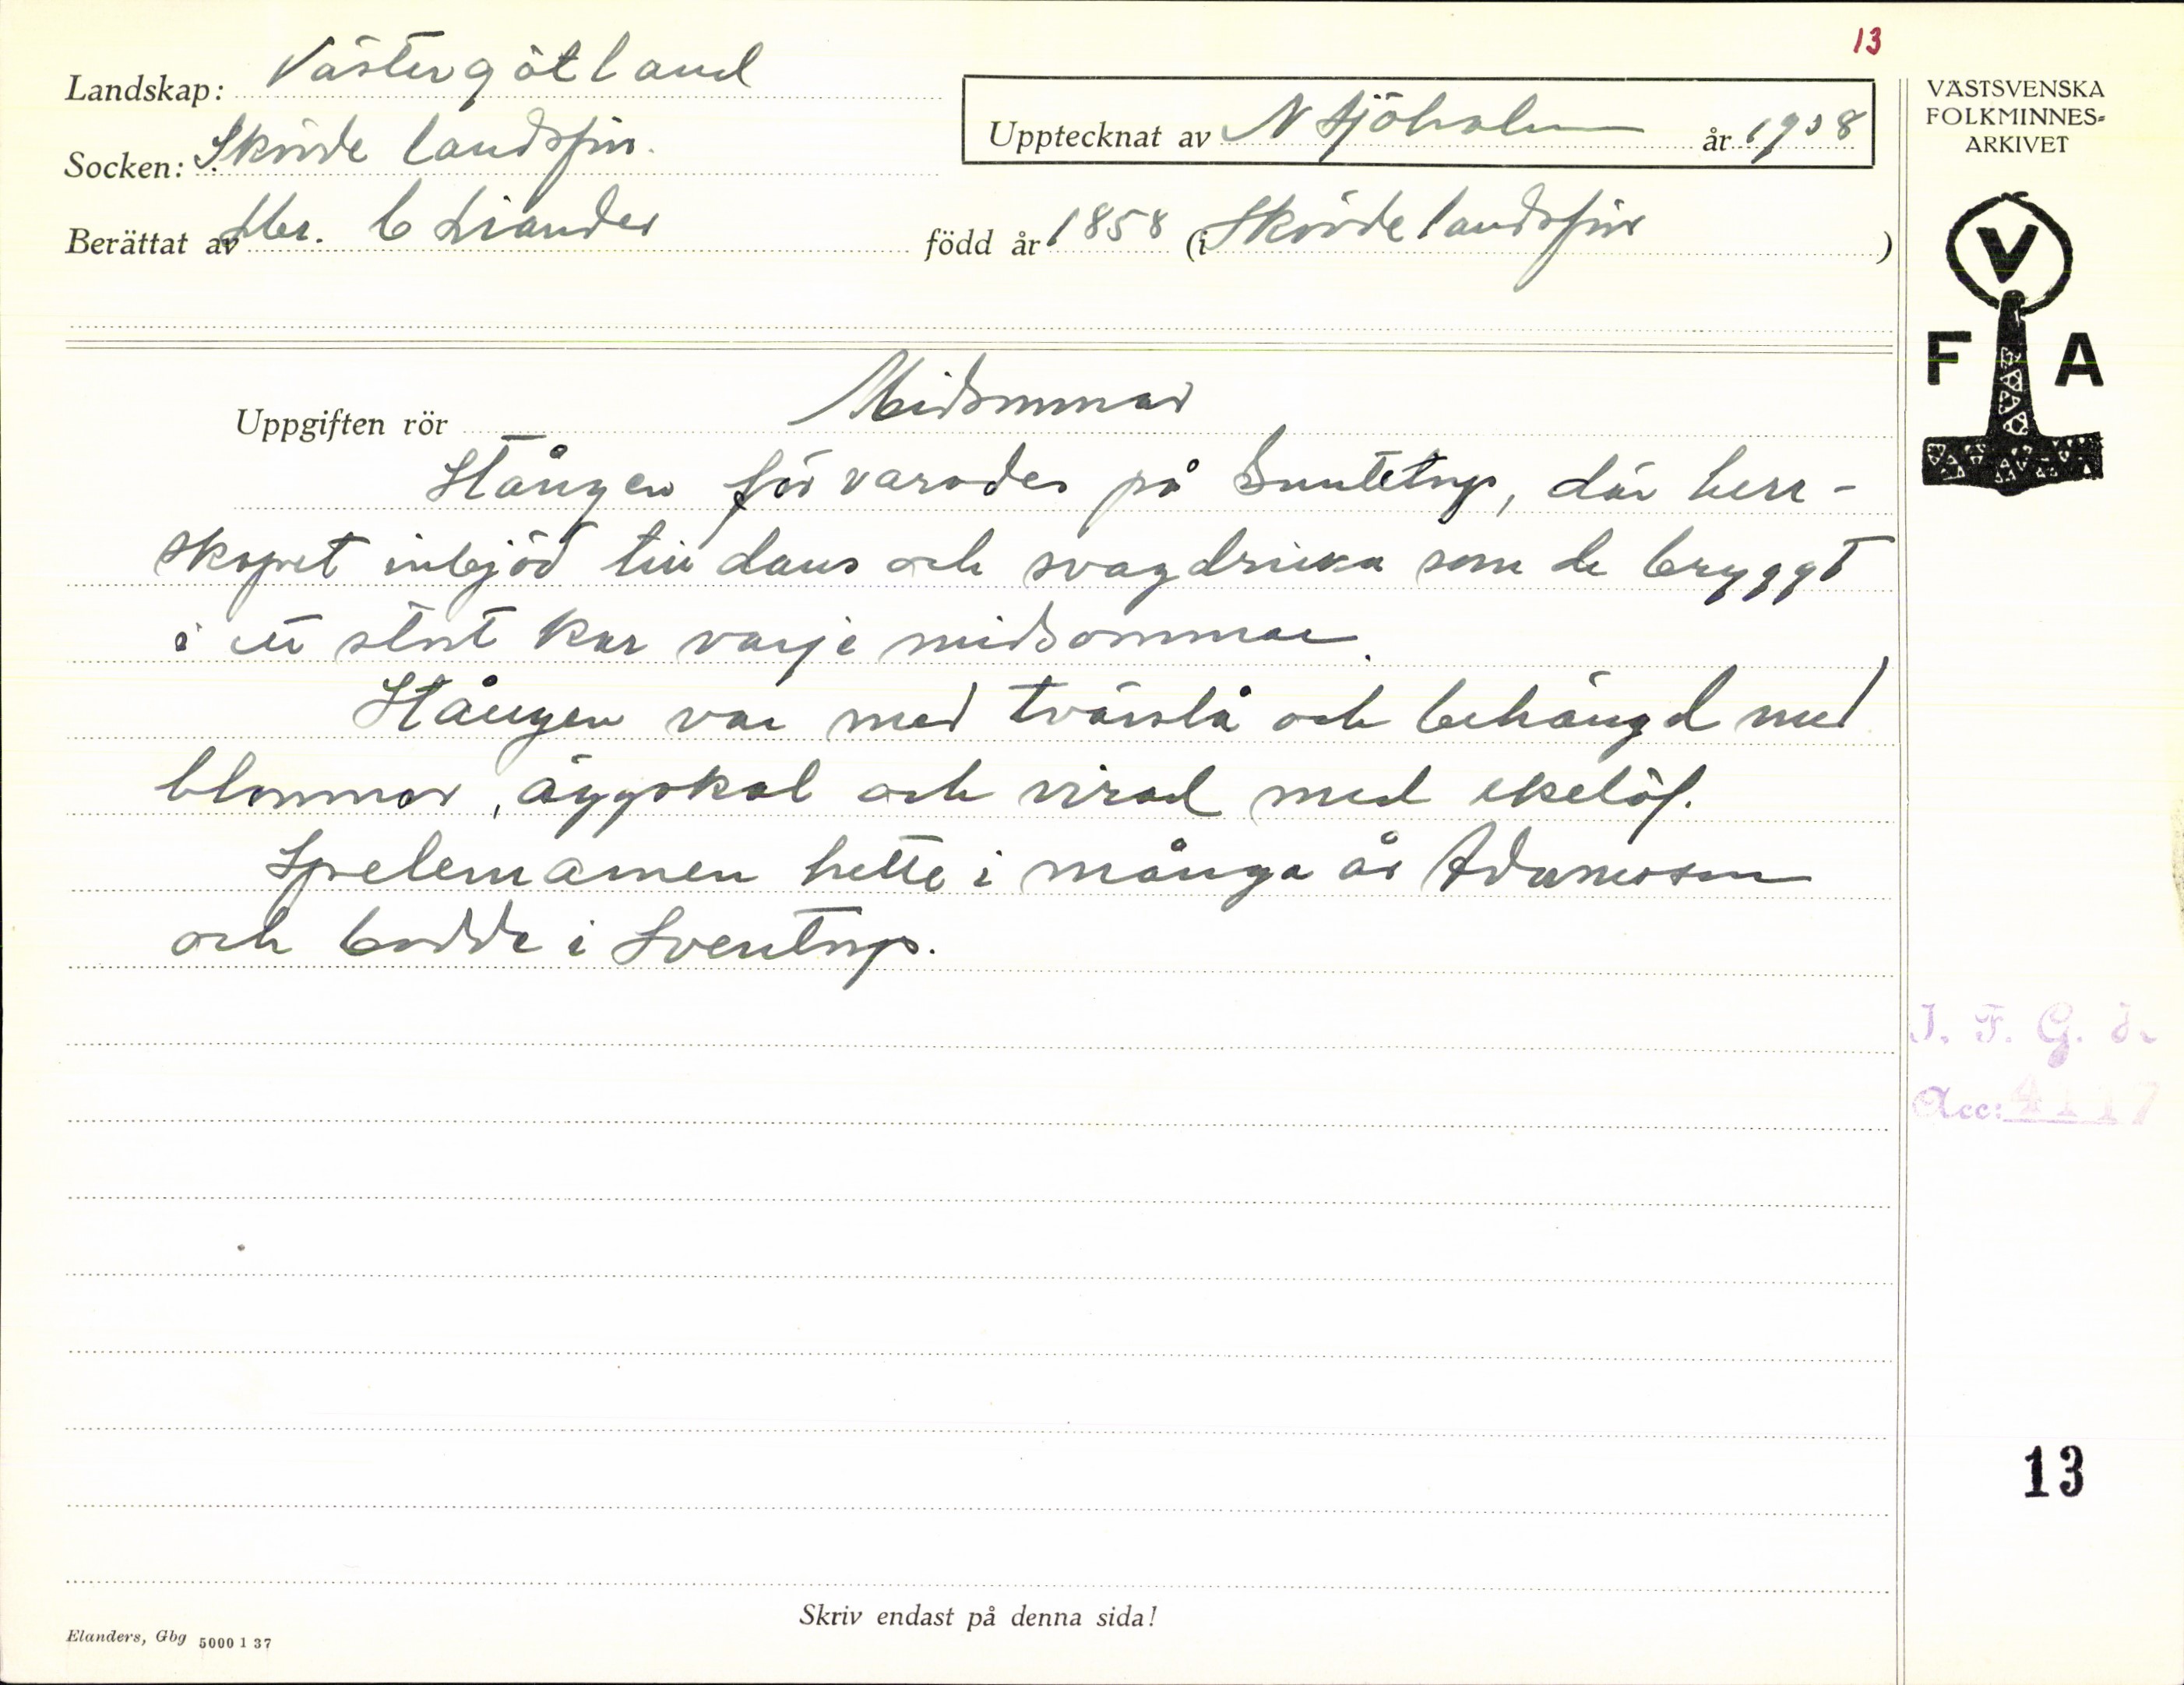 13
Landskap: Västergötland
Socken: Skövde landsförs.
Upptecknat av N Sjöholm år 1938
VÄSTSVENSKA
FOLKMINNES=
ARKIVET
Berättat av C Liander född år 1858 (i Skövde landsförs )
V
F A
Uppgiften rör Midsommar
Stången förvarades på , där herr-
skapet inbjöd till dans och svagdricka som de bryggt
i ett stort kar varje midsommar.
Stången var med tvärslå och behängd med
blommor, äggskal och virad med ekelöf.
Spelemannen hette i många år Adamsson
och bodde i Sventorp.
I. F. G. d.
Acc: 4117
13
Skriv endast på denna sida!
Elanders, Gbg 5000 1 37